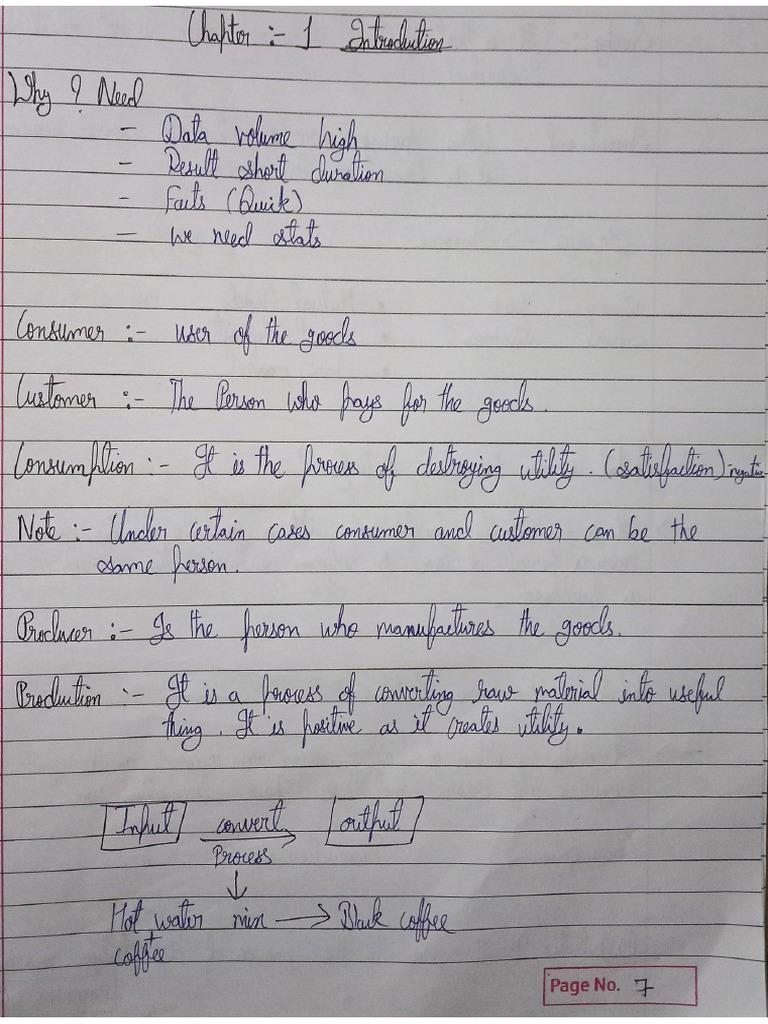 Chapter :- 1 Introduction
Why ? Need
- Data volume high
- Result short duration
- Facts (Quick)
- We need stats
Consumer :- user of the goods
Customer :- The Person who pays for the goods.
Consumption :- It is the process of destroying utility. (satisfaction) negative
Note :- Under certain cases consumer and customer can be the
same person.
Producer :- Is the person who manufactures the goods.
Production :- It is a process of converting raw material into useful
thing. It is positive as it creates utility.
Input convert output
Process
Hot water mix → Black coffee
+
coffee
Page No. 7